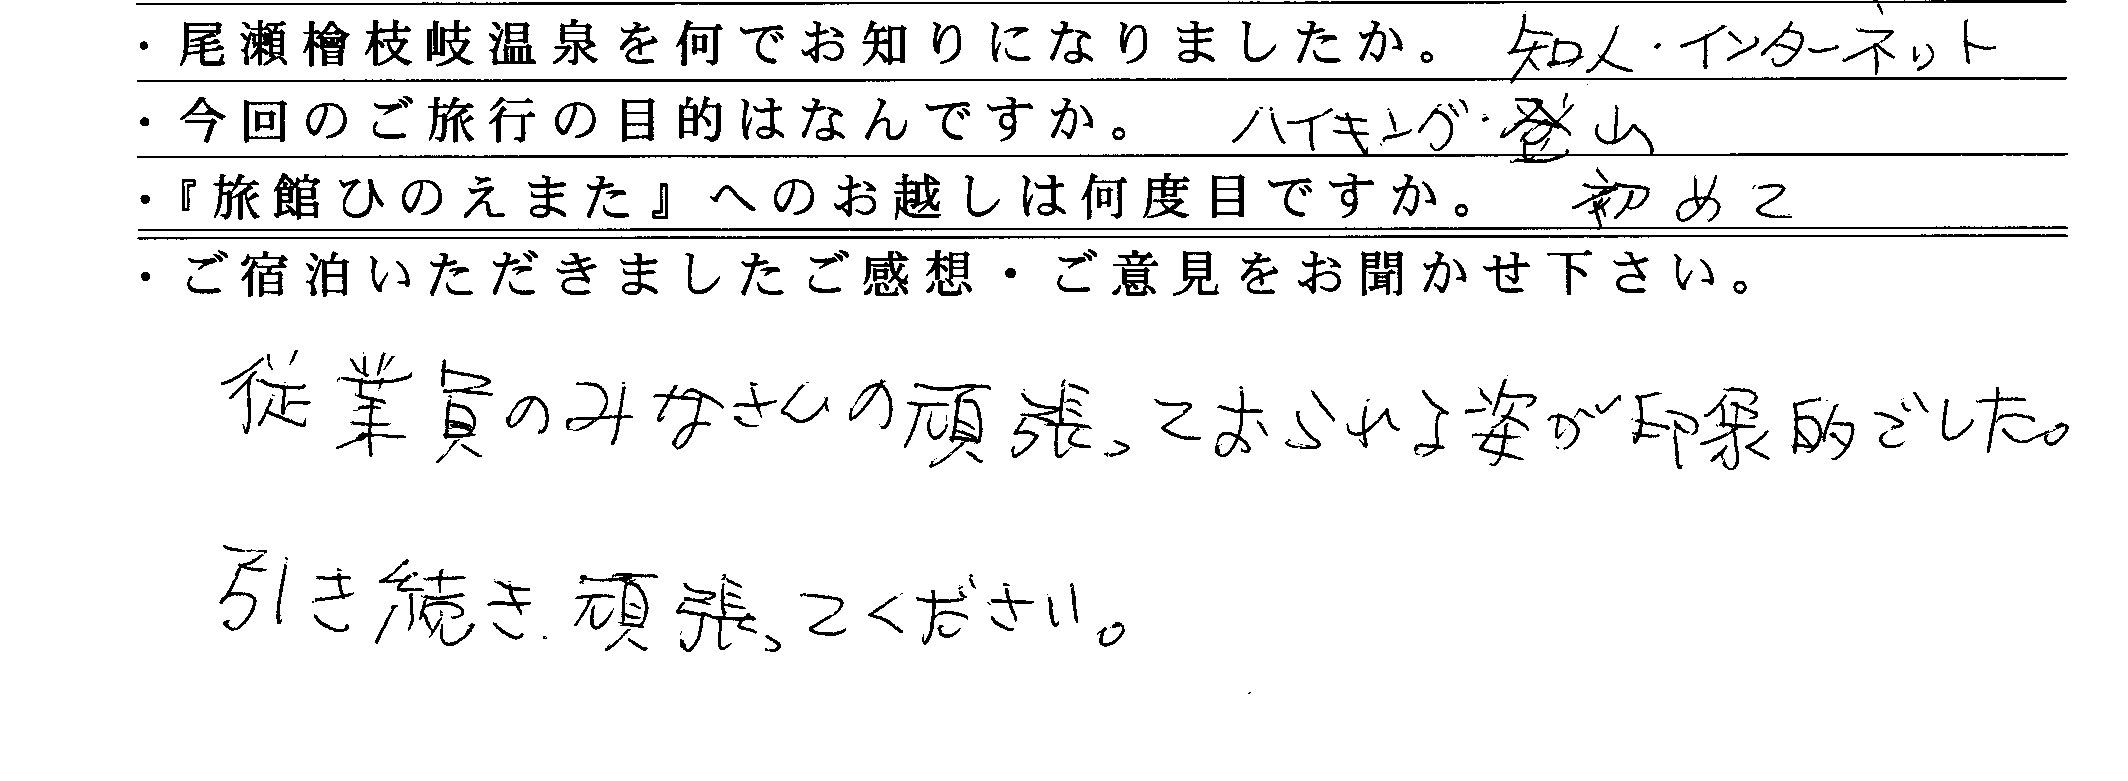 ・尾瀬檜枝岐温泉を何でお知りになりましたか。 知人・インターネット
・今回のご旅行の目的はなんですか。 ハイキング・登山
・『旅館ひのえまた』へのお越しは何度目ですか。 初めて
・ご宿泊いただきましたご感想・ご意見をお聞かせ下さい。
従業員のみなさんの頑張っておられる姿が印象的でした。
引き続き、頑張ってください。